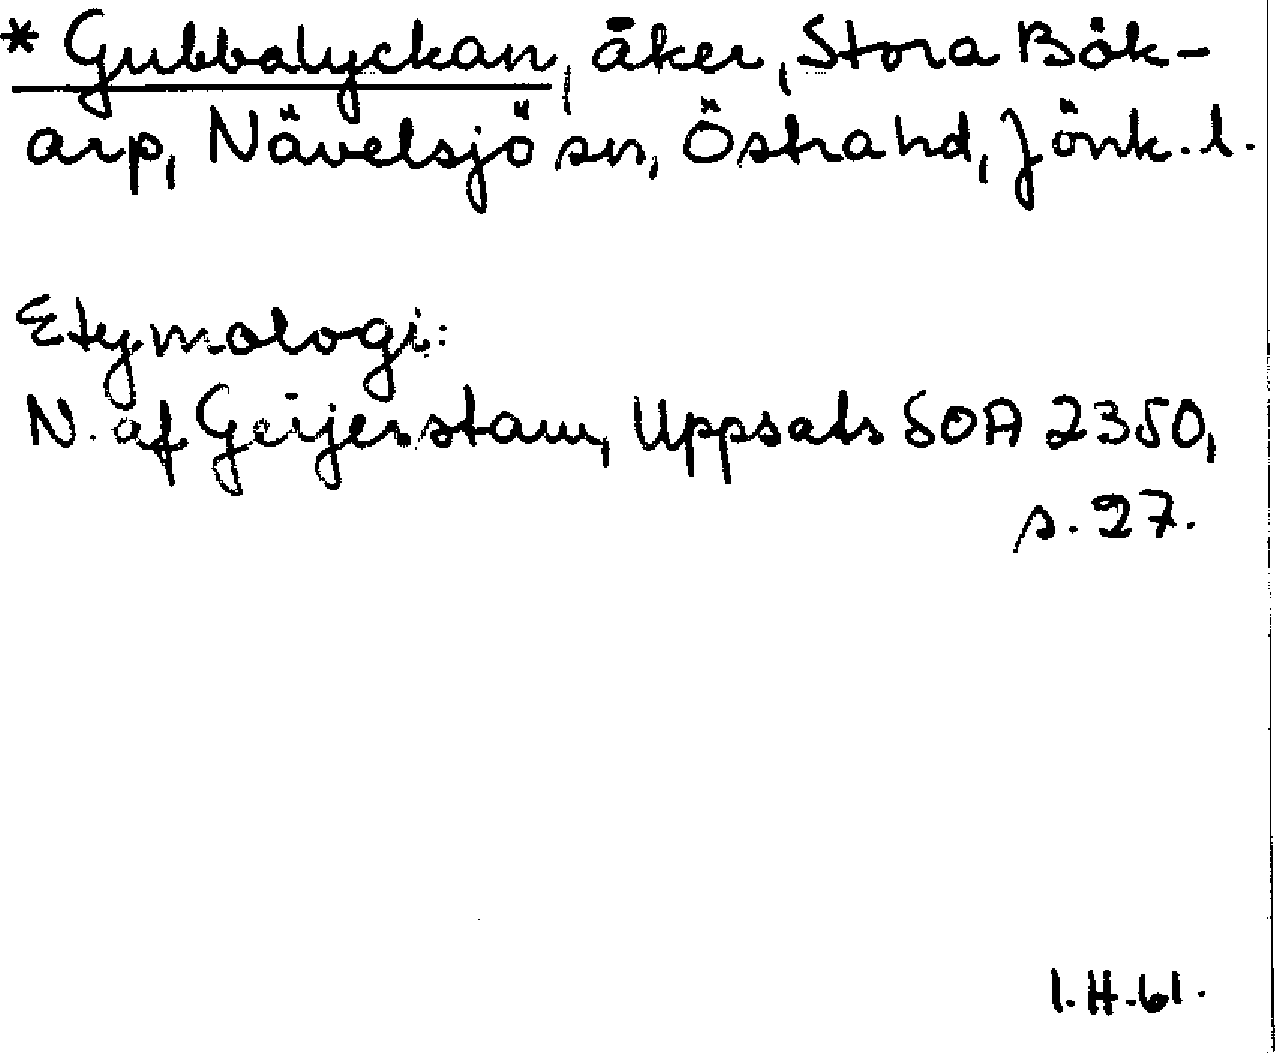 * Gubbalyckan, åker, Stora Bök-
arp, Nävelsjö sn, Östra hd, Jönk. l.
Etymologi:
N. af Geijerstam, Uppsats SOA 2350,
s. 27.
I.H.61.